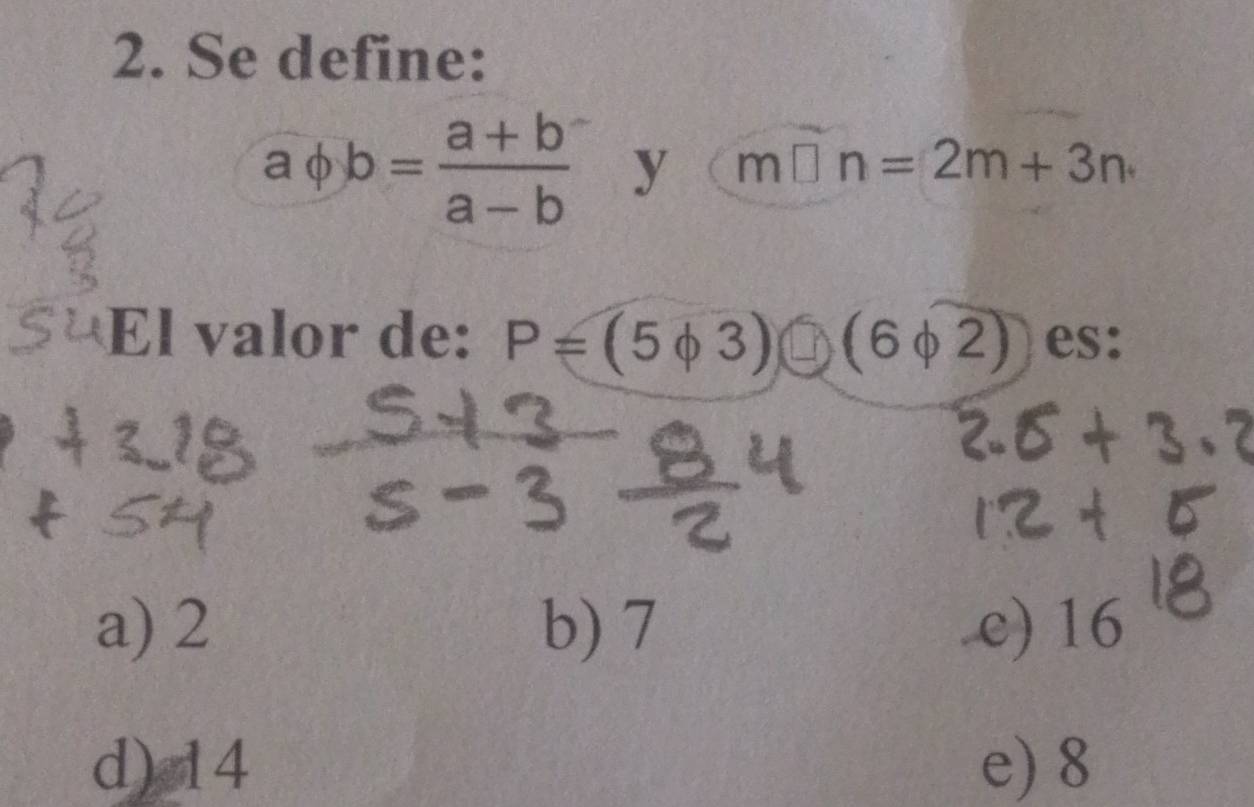 2. Se define:
a ϕ b = (a + b)/(a − b) y m □ n = 2m + 3n
54
El valor de: P = (5 ϕ 3) □ (6 ϕ 2) es:
+ 3.18
+ 54
5+3
5-3
8
2
4
2.6 + 3.2
12 + 6
18
a) 2 b) 7 c) 16
d) 14 e) 8